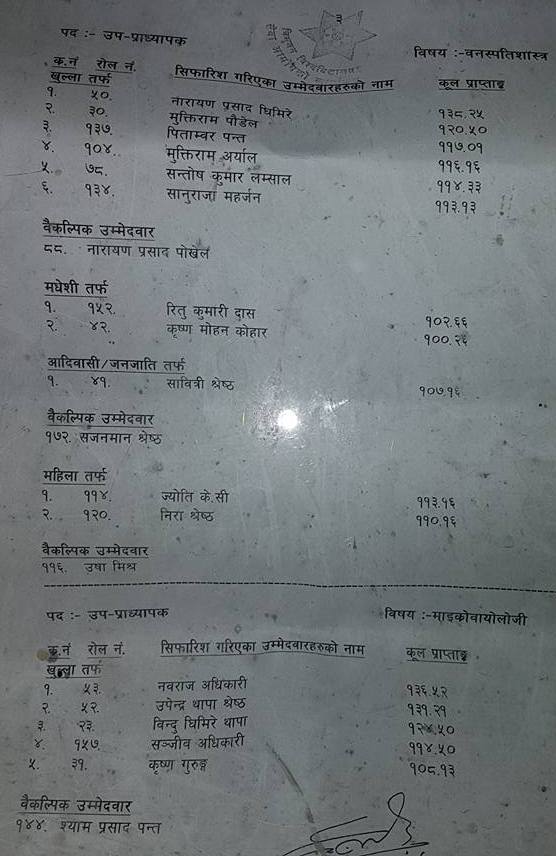 ३
पद :- उप-प्राध्यापक विषय :-वनस्पतिशास्त्र
क्र.नं रोल नं. सिफारिश गरिएका उम्मेदवारहरुको नाम कूल प्राप्ताङ्क
खुल्ला तर्फ
१. ५०. नारायण प्रसाद घिमिरे १३८.२५
२. ३०. मुक्तिराम पौडेल १२०.५०
३. १३७. पिताम्वर पन्त ११७.०१
४. १०४. मुक्तिराम अर्याल ११६.१६
५. ७८. सन्तोष कुमार लम्साल ११४.३३
६. १३४. सानुराजा महर्जन ११३.१३
वैकल्पिक उम्मेदवार
८८. नारायण प्रसाद पोखेल
मधेशी तर्फ
१. १५२. रितु कुमारी दास १०२.६६
२. ४२. कृष्ण मोहन कोहार १००.२६
आदिवासी/जनजाति तर्फ
१. ४१. सावित्री श्रेष्ठ १०७.१६
वैकल्पिक उम्मेदवार
१७२. सजनमान श्रेष्ठ
महिला तर्फ
१. ११४. ज्योति के.सी ११३.५६
२. १२०. निरा श्रेष्ठ ११०.१६
वैकल्पिक उम्मेदवार
११६. उषा मिश्र
पद :- उप-प्राध्यापक विषय :-माइकोवायोलोजी
क्र.नं रोल नं. सिफारिश गरिएका उम्मेदवारहरुको नाम कूल प्राप्ताङ्क
खुल्ला तर्फ
१. ५३. नवराज अधिकारी १३६.५२
२. ५२. उपेन्द्र थापा श्रेष्ठ १३१.२१
३. २३. विन्दु घिमिरे थापा १२४.५०
४. १५७. सञ्जीव अधिकारी ११४.५०
५. ३१. कृष्ण गुरुङ्ग १०८.१३
वैकल्पिक उम्मेदवार
१४४. श्याम प्रसाद पन्त